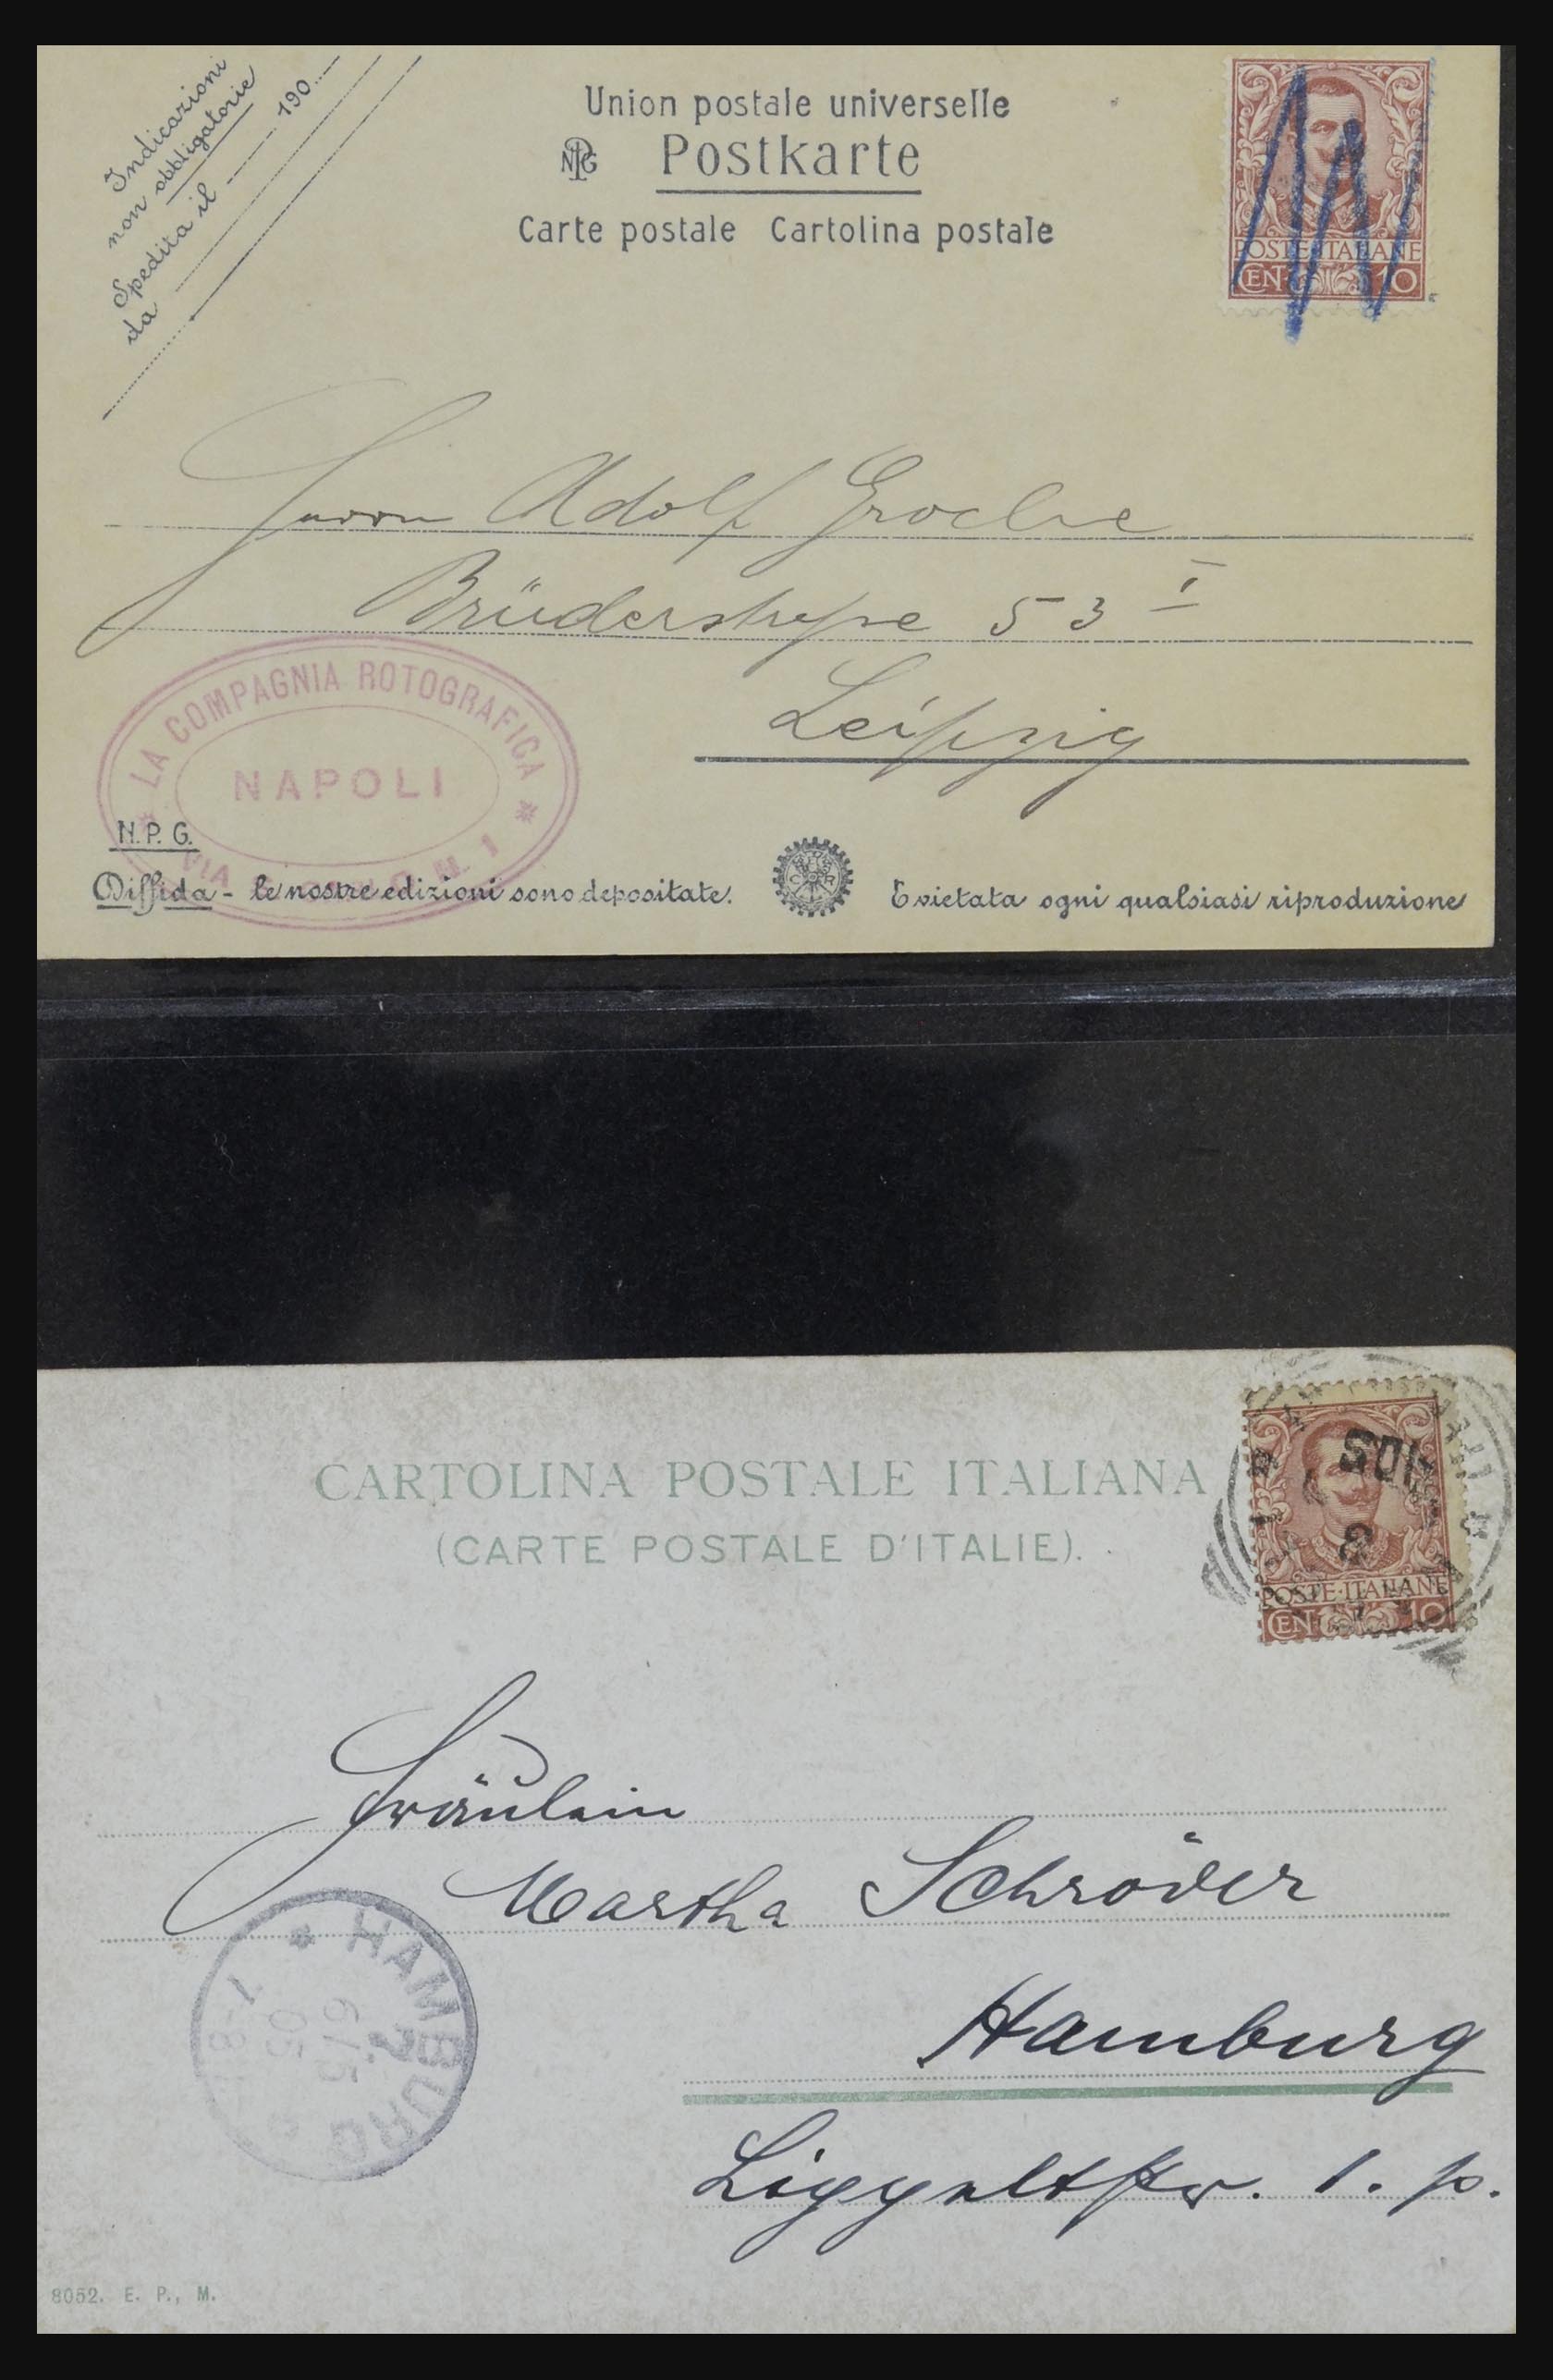 Indicazioni
non obbligatorie
Spedita il 190
da
Union postale universelle
NPG Postkarte
Carte postale Cartolina postale
POSTE·ITALIANE
CEN· 10
Herrn Adolf Groche
Brüderstrasse 53 I
Leipzig
LA COMPAGNIA ROTOGRAFICA
NAPOLI
VIA N. 1
N.P.G.
Diffida - le nostre edizioni sono depositate.
È vietata ogni qualsiasi riproduzione
CARTOLINA POSTALE ITALIANA
(CARTE POSTALE D'ITALIE).
POSTE·ITALIANE
CEN· 10
Fräulein
Martha Schröder
Hamburg
1. p.
HAMBURG
8052. E. P., M.